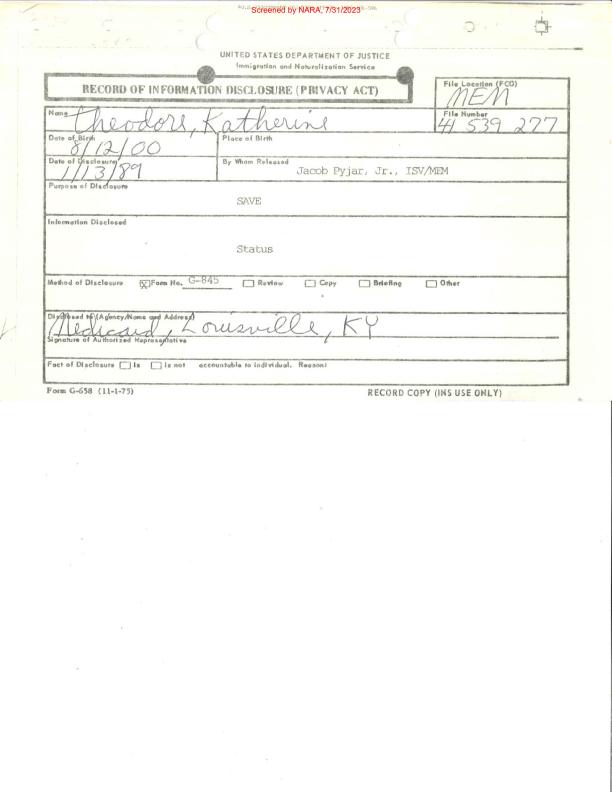 Screened by NARA, 7/31/2023
UNITED STATES DEPARTMENT OF JUSTICE
Immigration and Naturalization Service
RECORD OF INFORMATION DISCLOSURE (PRIVACY ACT)
File Location (FCO)
MEM
Name Theodore, Katherine
File Number
41 539 277
Date of Birth
8/12/00
Place of Birth
Date of Disclosure
1/13/89
By Whom Released
Jacob Pyjar, Jr., ISV/MEM
Purpose of Disclosure
SAVE
Information Disclosed
Status
Method of Disclosure Form No. G-845 Review Copy Briefing Other
Disclosed to (Agency/Name and Address)
Medicaid, Louisville, KY
Signature of Authorized Representative
Fact of Disclosure Is Is not accountable to individual. Reason:
Form G-658 (11-1-75)
RECORD COPY (INS USE ONLY)